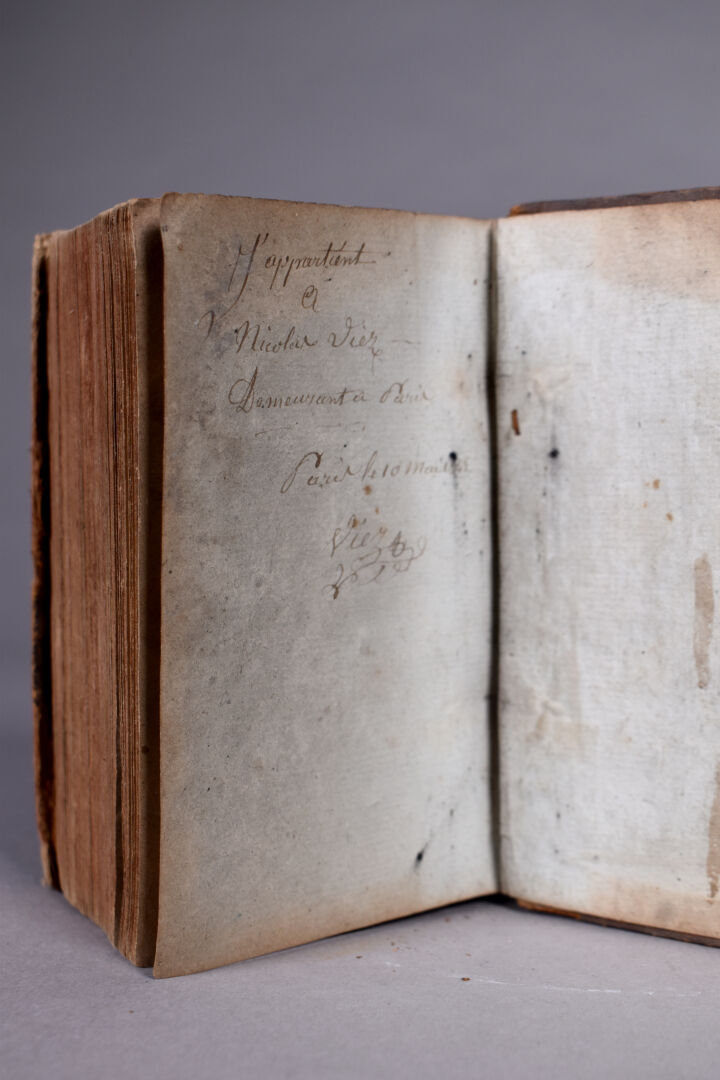 J'appartient
A
Nicolas Viez
Demeurant a Paris
Paris le 10 Mai
Viez